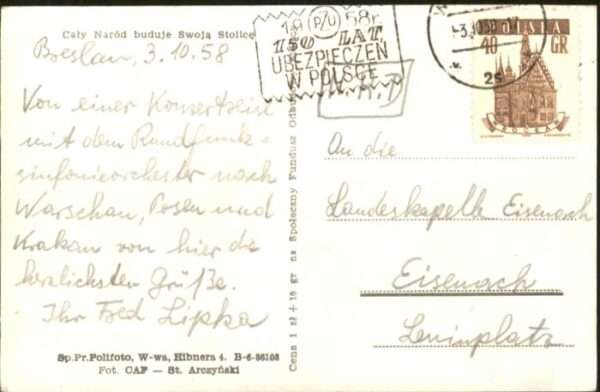 Cały Naród buduje Swoją Stolicę
Breslau, 3.10.58
Von einer Konzertreise
mit dem Rundfunk-
sinfonieorchester nach
Warschau, Posen und
Krakau von hier die
herzlichsten Grüße.
Ihr Fred Lipka
Sp.Pr.Polifoto, W-wa, Hibnera 4. B-6-86108
Fot. CAF — St. Arczyński
Cena 1 zł + 15 gr na Społeczny Fundusz Odbu
19 PZU 58r.
150 LAT
UBEZPIECZEŃ
W POLSCE
POLSKA
40 GR
WROCŁAW
-3.10.58
2s
An die
Landeskapelle Eisenach
Eisenach
Leninplatz